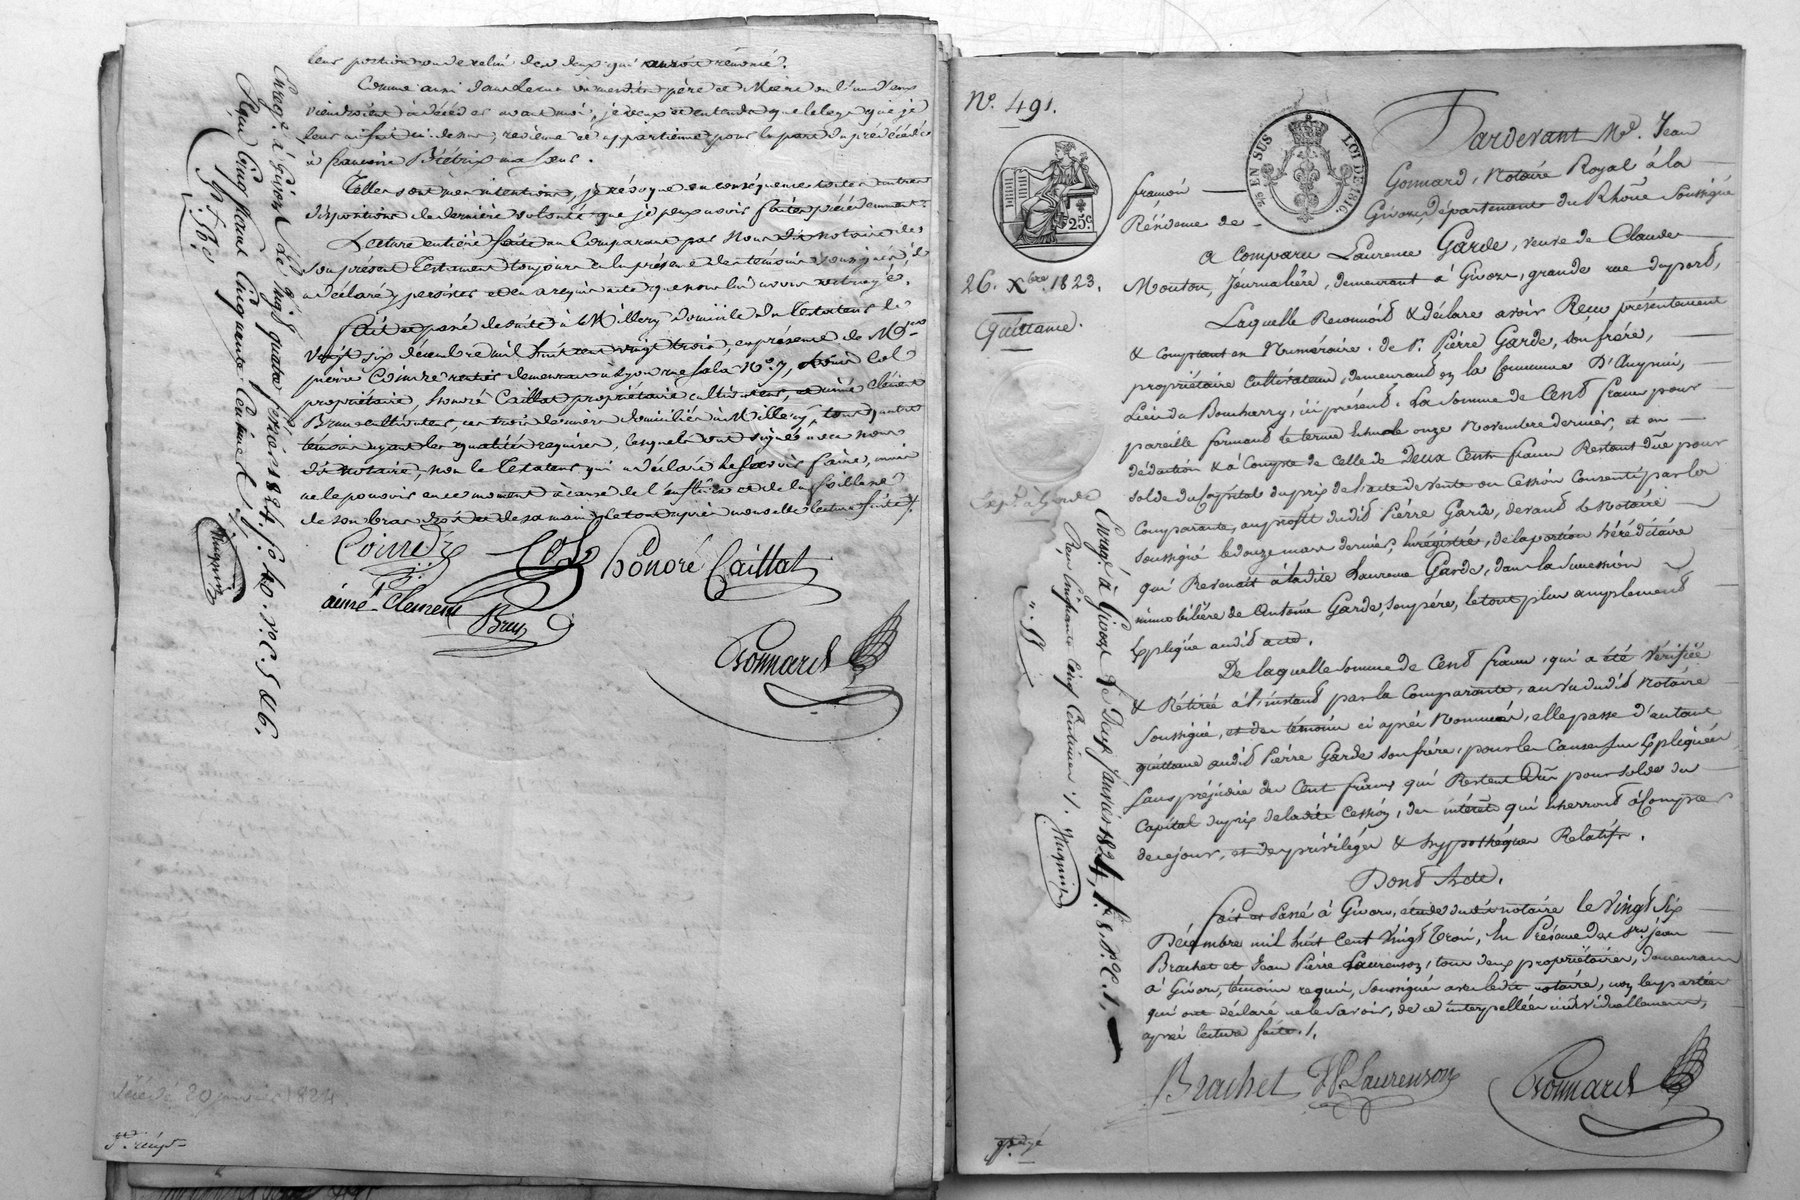 leur portion ou de celui des deux qui auroit renoncé.
Comme aussi dans le cas où mesdits père et Mère ou l'un d'eux
viendroient à décéder avant moi, je veux et entends que le legs que je
leur ai fait ci-dessus, revienne et appartienne pour la part du prédécédé
à francoise Biétrix ma sœur.
Telles sont mes intentions, je révoque en conséquence toutes autres
dispositions de dernière volonté que je peux avoir faites précédemment.
Lecture entière faite au Comparant par Nous dit notaire de
son présent Testament toujours en la présence des témoins soussignés, il
a déclaré y persister et en a requis acte que nous lui avons octroyé.
fait et passé de suite à Millery domicile du Testateur le
vingt six décembre mil huit cent vingt trois, en présence de MM.
pierre Coindre rentier demeurant à Lyon rue Sala N.° 7, Col
propriétaire, honoré Caillat propriétaire cultivateur, et aimé clément
Brun cultivateur, ces trois derniers domiciliés à Millery, tous quatre
témoins ayant les qualités requises, lesquels ont signé avec nous
dit notaire, non le Testateur qui a déclaré le savoir faire, mais
ne le pouvoir en ce moment à cause de l'enflûre et de la foiblesse
de son bras droit et de sa main, le tout après nouvelle lecture faite.
Col
honoré Caillat
aimé Clement
Brun
Gonnard
Enreg.é à Givors le vingt quatre février 1824. f.o 40. r.o C. 5 et 6.
Reçu cinq francs cinquante centimes
Décédé 20 janvier 1824.
N.° 491.
25c.
25 EN SUS
LOI DE 1816
26. Xbre 1823.
Quittance.
Pardevant M.e Jean
françois Gonnard, Notaire Royal à la
Résidence de Givors, département du Rhône soussigné
a comparu Laurence Garde, veuve de Claude
Mouton, Journalière, demeurant à Givors, grande rue du port,
Laquelle Reconnoit & déclare avoir Reçu présentement
& comptant en Numéraire, de S.r Pierre Garde, son frère,
propriétaire cultivateur, demeurant en la commune D'
Lieu du, ici présent. La somme de Cent francs pour
pareille formant le terme échu le onze Novembre dernier, et en
déduction & à Compte de celle de Deux Cents francs Restant dûe pour
solde du Capital du prix de l'acte de vente ou Cession Consenti par la
Comparante, au profit dudit Pierre Garde, devant le Notaire
soussigné le douze mars dernier, enregistré, de la portion héréditaire
qui Revenait à ladite Laurence Garde, dans la Succession
immobilière de Antoine Garde, son père, le tout plus amplement
Expliqué audit acte.
De laquelle somme de Cent francs, qui a été Vérifiée
& Rétirée à l'instant par la Comparante, au vu dudit Notaire
Soussigné, et des témoins ci après Nommés, elle passe d'autant
quittance audit Pierre Garde son frère, pour les Causes sus Expliquées
Sans préjudice des Cent francs qui Restent Dûs pour solde du
Capital du prix de ladite Cession, des intérêts qui écherront à Compter
de ce jour, et des privilèges & hypothèques Relatifs.
Dont Acte.
fait et Passé à Givors, étude dudit notaire le vingt Six
Décembre mil huit Cent Vingt Trois, En Présence des Srs. jean
Brachet et Jean Pierre Laurenson, tous deux propriétaires, demeurant
à Givors, témoins requis, soussignés avec ledit notaire, non les parties
qui ont déclaré ne le savoir, de ce interpellées individuellement,
après lecture faite ./.
Brachet
JP. Laurenson
Gonnard
Enreg.é à Givors le Deux Janvier 1824, f.o 8. r.o C. 1,
Reçu Cinquante cinq Centimes ./.